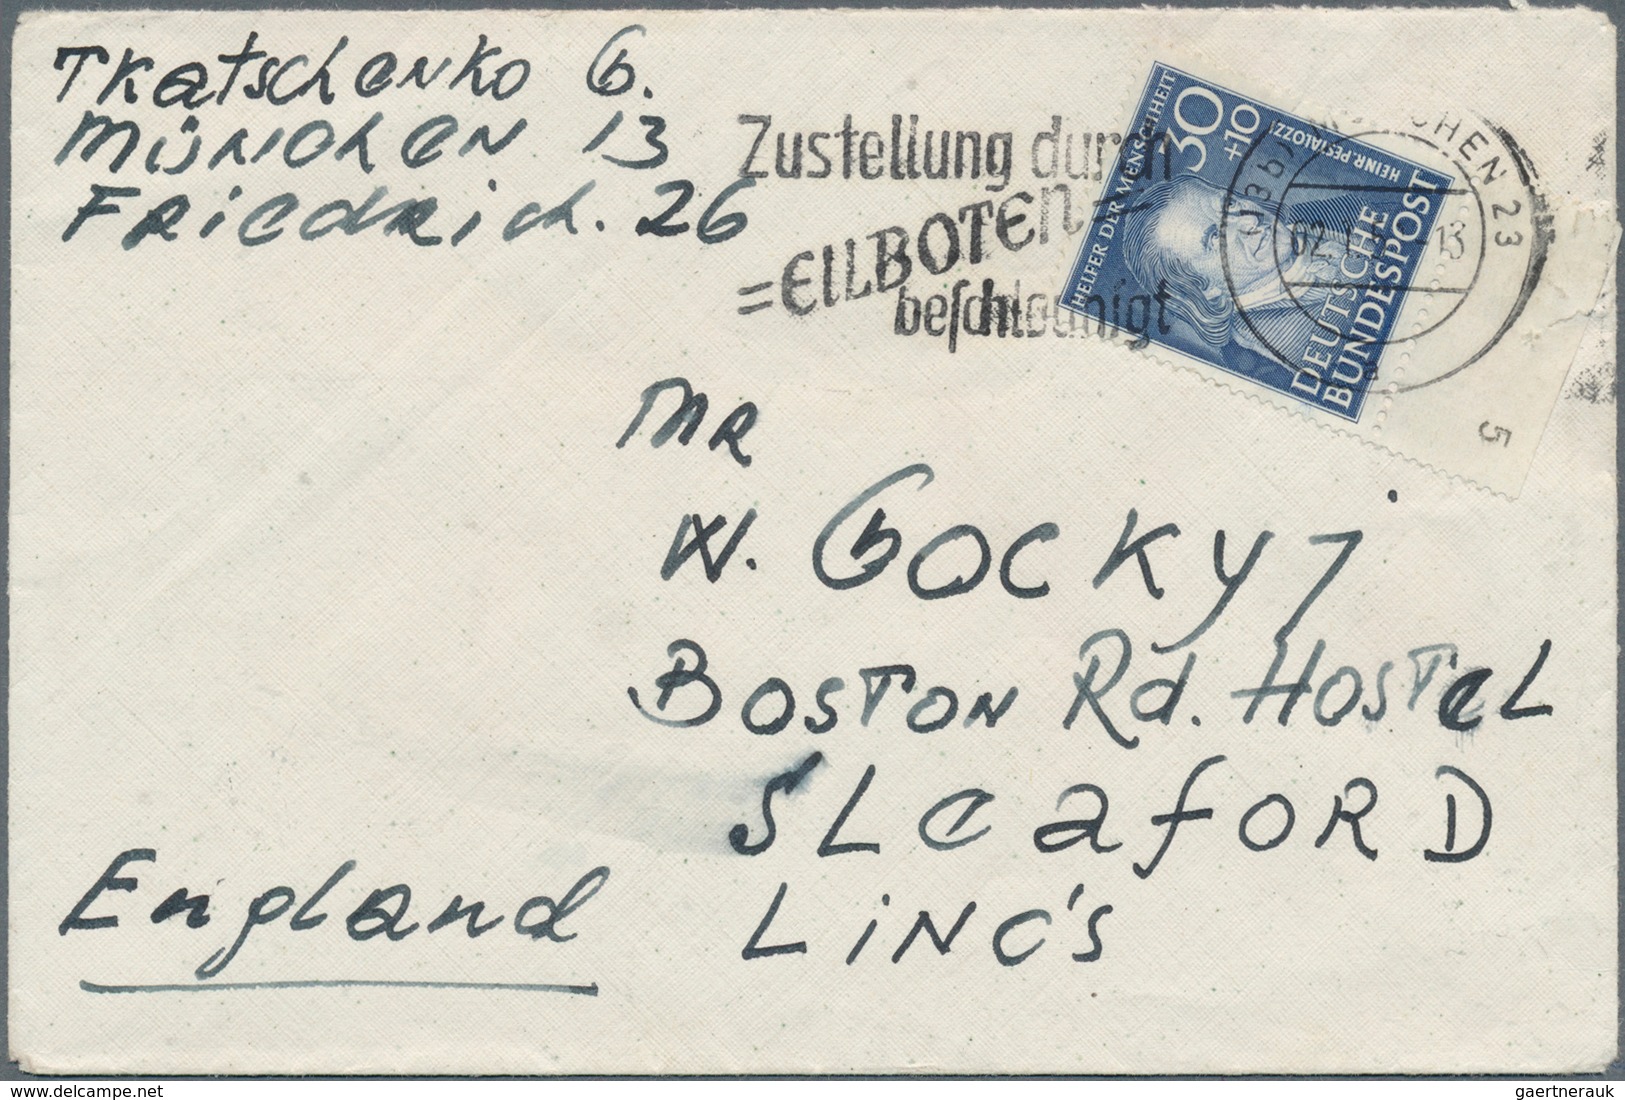 Tkatschenko G.
München 13
Friedrich. 26
Zustellung durch
=EILBOTEN=
beschleunigt
30
+10
HEINR. PESTALOZZI
HELFER DER MENSCHHEIT
DEUTSCHE
BUNDESPOST
MÜNCHEN 23
-13
a
5
MR
W. GOCKYJ
BOSTON Rd. HOSTEL
SLEAFORD
LINC'S
England
www.delcampe.net
gaertnerauk